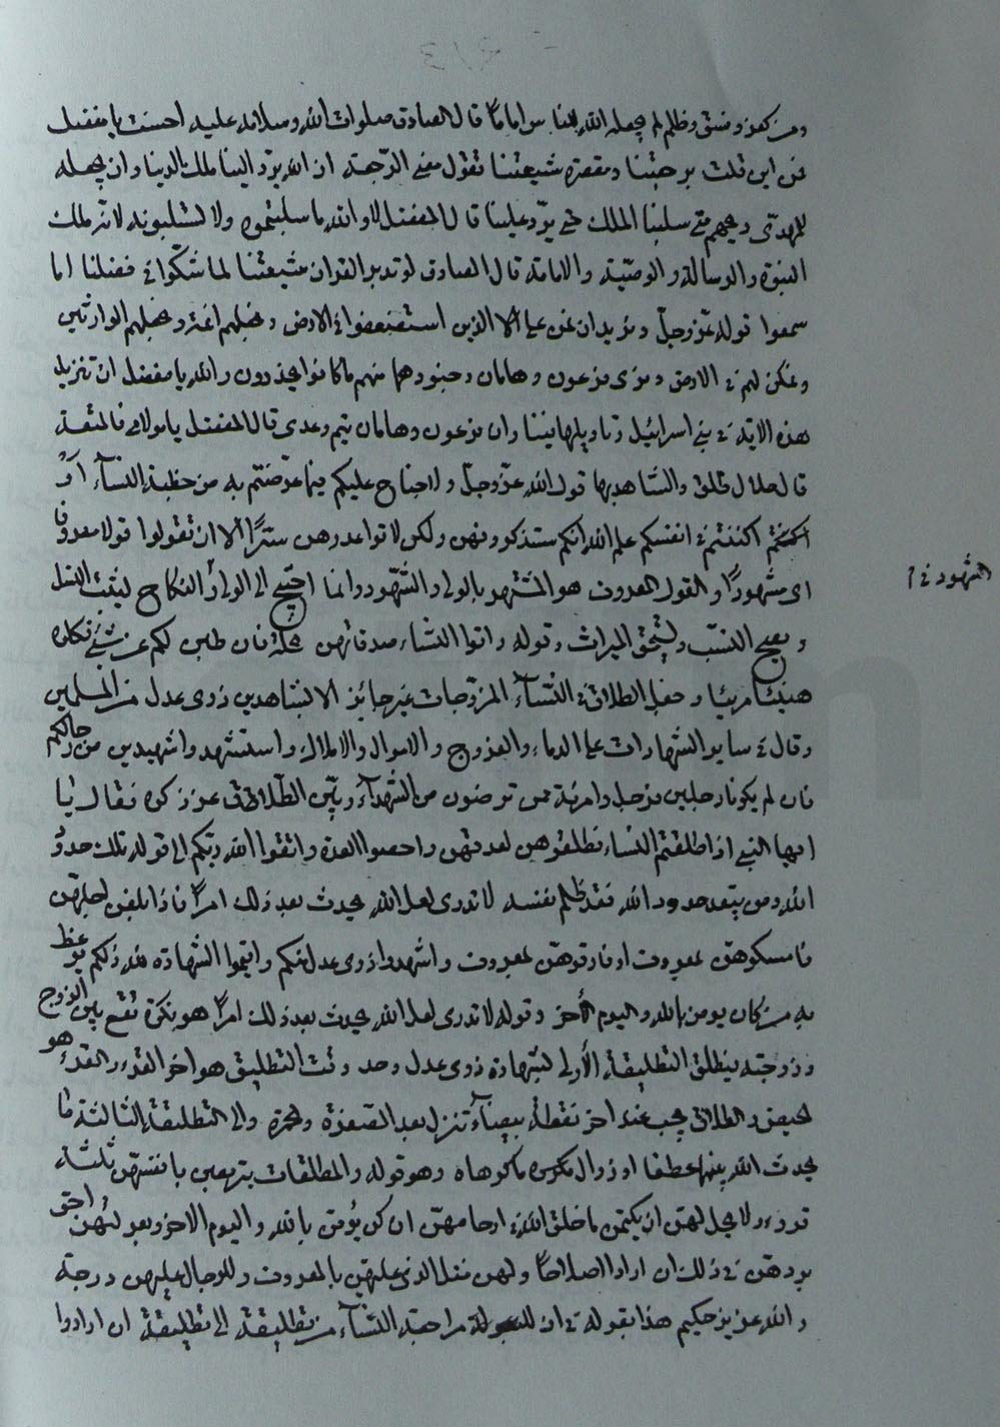 ومن كفر وفسق وظلم لم يجعله الله للناس اماما قال الصادق صلوات الله وسلامه عليه احسنت يا مفضل
فمن اين قلت برجعتنا ومقصرة شيعتنا تقول معنى الرجعة ان الله يرد الينا ملك الدنيا وان يجعله
للمهدي ويحهم متى سلبنا الملك حتى يرد علينا قال المفضل لا والله ما سلبتموه ولا تسلبونه لانه ملك
النبوة والرسالة والوصية والامامة قال الصادق لو تدبر القران شيعتنا لما شكوا في فضلنا اما
سمعوا قوله عز وجل ونريد ان نمن على الذين استضعفوا في الارض ونجعلهم ائمة ونجعلهم الوارثين
ونمكن لهم في الارض ونرى فرعون وهامان وجنودهما منهم ما كانوا يحذرون والله يا مفضل ان تنزيل
هذه الاية في بني اسرائيل وتاويلها فيناوان فرعون وهامان تيم وعدى قال المفضل يا مولاى فالمتعة
قال حلال طلق والشاهد بها قول الله عز وجل ولا جناح عليكم فيما عرضتم به من خطبة النساء او
اكننتم في انفسكم علم الله انكم ستذكرونهن ولكن لا تواعدوهن سرا الا ان تقولوا قولا معروفا
اى مشهودا والقول المعروف هو المشتهر بالولى والشهود وانما احتيج الى الولى والشهود في النكاح ليثبت النسل
ويصح النسب ويستحق الميراث وقوله واتوا النساء صدقاتهن نحلة فان طبن لكم عن شئ فكلوه
هنيئا مريئا وجعل الطلاق في النساء المزوجات غير جايز الا بشاهدين ذوى عدل من المسلمين
وقال في ساير الشهادات على الدماء والفروج والاموال والاملاك واستشهدوا شهيدين من رجالكم
فان لم يكونا رجلين فرجل وامرئة ممن ترضون من الشهداء وبين الطلاق عز ذكره فقال يا
ايها النبى اذا طلقتم النساء فطلقوهن لعدتهن واحصوا العدة واتقوا الله ربكم الى قوله تلك حدود
الله ومن يتعد حدود الله فقد ظلم نفسه لا تدرى لعل الله يحدث بعد ذلك امرا فاذا بلغن اجلهن
فامسكوهن بمعروف او فارقوهن بمعروف واشهدوا ذوى عدل منكم واقيموا الشهادة لله ذلكم يوعظ
به من كان يومن بالله واليوم الاخر وقوله لا تدرى لعل الله يحدث بعد ذلك امرا هو نكرة تقع بين الزوج
وزوجته فيطلق التطليقة الاولى بشهادة ذوى عدل وحد وقت التطليق هو اخر القرء والقرء هو
الحيض والطلاق يجب عند اخر نقطة بيضاء تنزل بعد الصفرة والحمرة والى التطليقة الثالثة ما
يحدث الله بينهما عطفا او زوال ما كرهاه وهو قوله والمطلقات يتربصن بانفسهن ثلثة
قروء ولا يحل لهن ان يكتمن ما خلق الله في ارحامهن ان كن يؤمن بالله واليوم الاخر وبعولتهن احق
بردهن في ذلك ان ارادوا اصلاحا ولهن مثل الذى عليهن بالمعروف وللرجال عليهن درجة
والله عزيز حكيم هذا بقوله في ان للبعولة مراجعة النساء من تطليقة الى تطليقة ان ارادوا